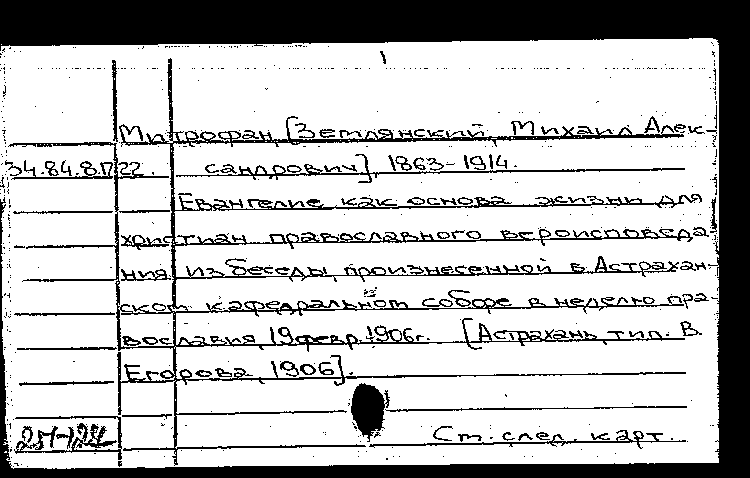 Митрофан, [Землянский, Михаил Алек-
34.84.8.П22. сандрович], 1863-1914.
Евангелие как основа жизни для
христиан православного вероисповеда-
ния. Из беседы, произнесенной в Астрахан-
ском кафедральном соборе в неделю пра-
вославия, 19 февр. 1906г. [Астрахань, тип. В.
Егорова, 1906].
См. след. карт.